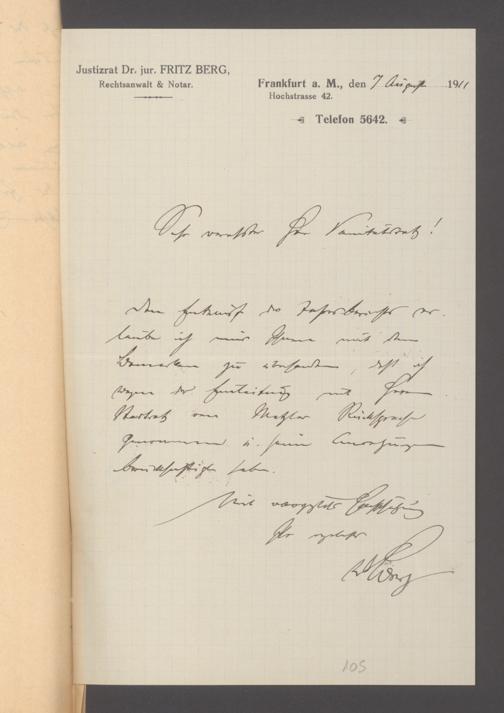 Justizrat Dr. jur. FRITZ BERG,
Rechtsanwalt & Notar.
Frankfurt a. M., den 7 August 1911
Hochstrasse 42.
Telefon 5642.
Sehr verehrter Herr Sanitätsrat!
Den Entwurf des Jahresberichts er-
laube ich mir Ihnen mit dem
Bemerken zu übersenden, daß ich
wegen der Einleitung mit Herrn
Stadtrat von Metzler Rücksprache
genommen u. seine Anregungen
berücksichtigt habe.
Mit vorzüglicher Hochachtung
Ihr ergebener
Berg
105